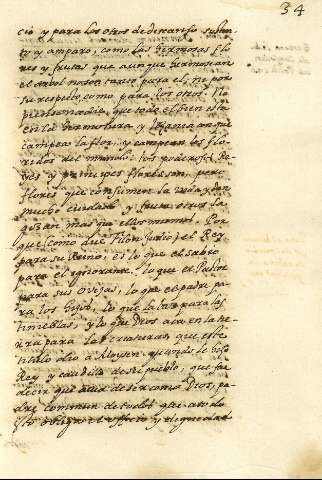 34
cio y para los otros de descanso susten
to y amparo, como las hermosas flo
res y frutas que aunque hermosean
el arbol no son tanto para el, ni por
su respeto como para los otros. No
piense nadie, que todo el bien esta
en la hermosura y loçania con que
campea la flor, y campean los flo
ridos del mundo: los poderosos Re
yes y principes flores son, pero
flores que consumen la vida y dan
mucho cuidado y fruto otros la
gozan mas que ellos mismos. Por
que (como dice Filon Judio) el Rey
para su Reino, es lo que el sabio
para el ignorante, lo que el Pastor
para sus ovejas, lo que el padre pa
ra los hijos, lo que la luz para las
tinieblas, y lo que Dios aca en la tie
rra para las criaturas, que este
titulo dio a Moysen quando le hiço
Rey y caudillo de su pueblo, que fue
decir que avia de ser como Dios, pa
dre commun de todos que a todo
esto obliga el officio y dignidad